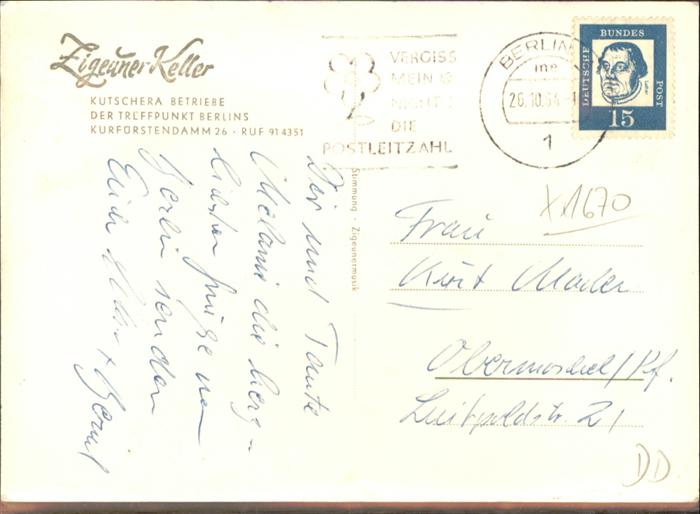 Zigeuner Keller
KUTSCHERA BETRIEBE
DER TREFFPUNKT BERLINS
KURFÜRSTENDAMM 26 · RUF 91 4351
VERGISS
MEIN
NICHT
DIE
POSTLEITZAHL
BERLIN
26.10.64
1
DEUTSCHE BUNDES POST
15
Stimmung · Zigeunermusik
Dir und Tante
Melanie die herz-
lichsten Grüße aus
Berlin senden
Eure + Bernd
X 1670
Frau
Kurt Mader
Obermoschel/Pf.
Luitpoldstr. 21
DD